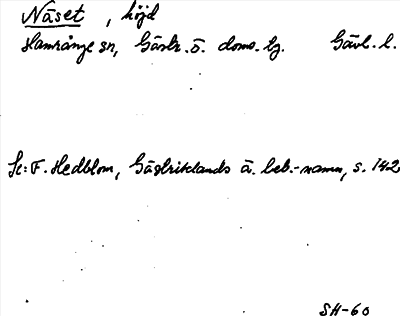 Näset, höjd
Hamrånge sn, Gästr. ö. doms. tg. Gävl. l.
Se: F. Hedblom, Gästriklands ä. beb.-namn, s. 142
SH-60